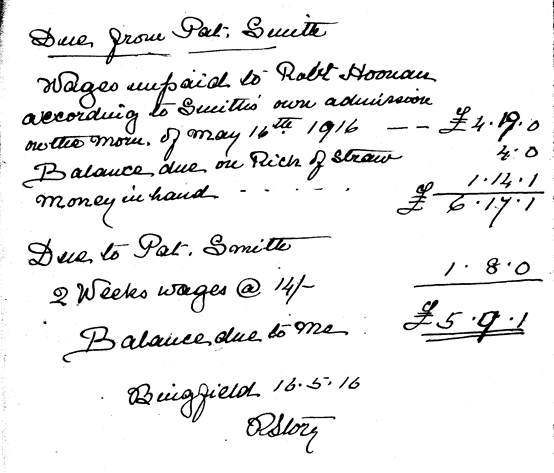 Due from Pat. Smith
Wages unpaid to Robt Hoonan
according to Smiths' own admission
on the morn. of May 16th 1916 — — £4.19.0
Balance due on Rick of straw 4.0
Money in hand . . . . 1.14.1
£ 6.17.1
Due to Pat. Smith
2 Weeks wages @ 14/- 1.8.0
Balance due to me £5.9.1
Bingfield 16.5.16
RStory